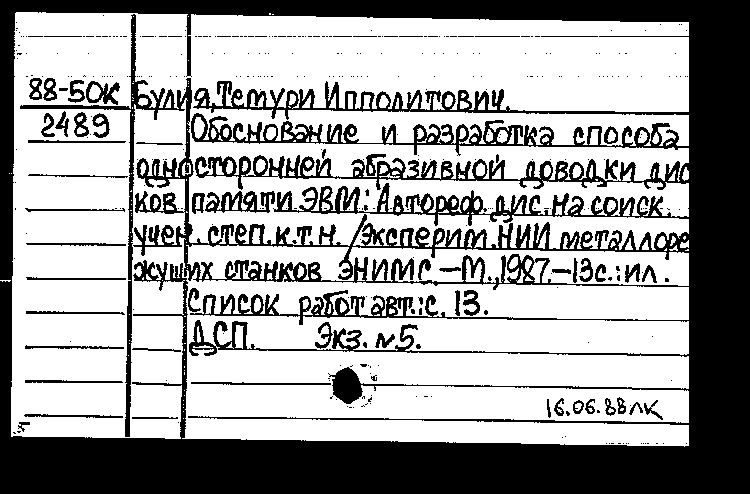 88-50К Булия, Темури Ипполитович.
2489 Обоснование и разработка способа
односторонней абразивной доводки дис
ков памяти ЭВМ: Автореф. дис. на соиск.
учен. степ. к.т.н. /Эксперим. НИИ металлоре
жущих станков ЭНИМС. -М., 1987. -13с.: ил.
Список работ авт.: с. 13.
ДСП. Экз. №5.
16.06.88лк